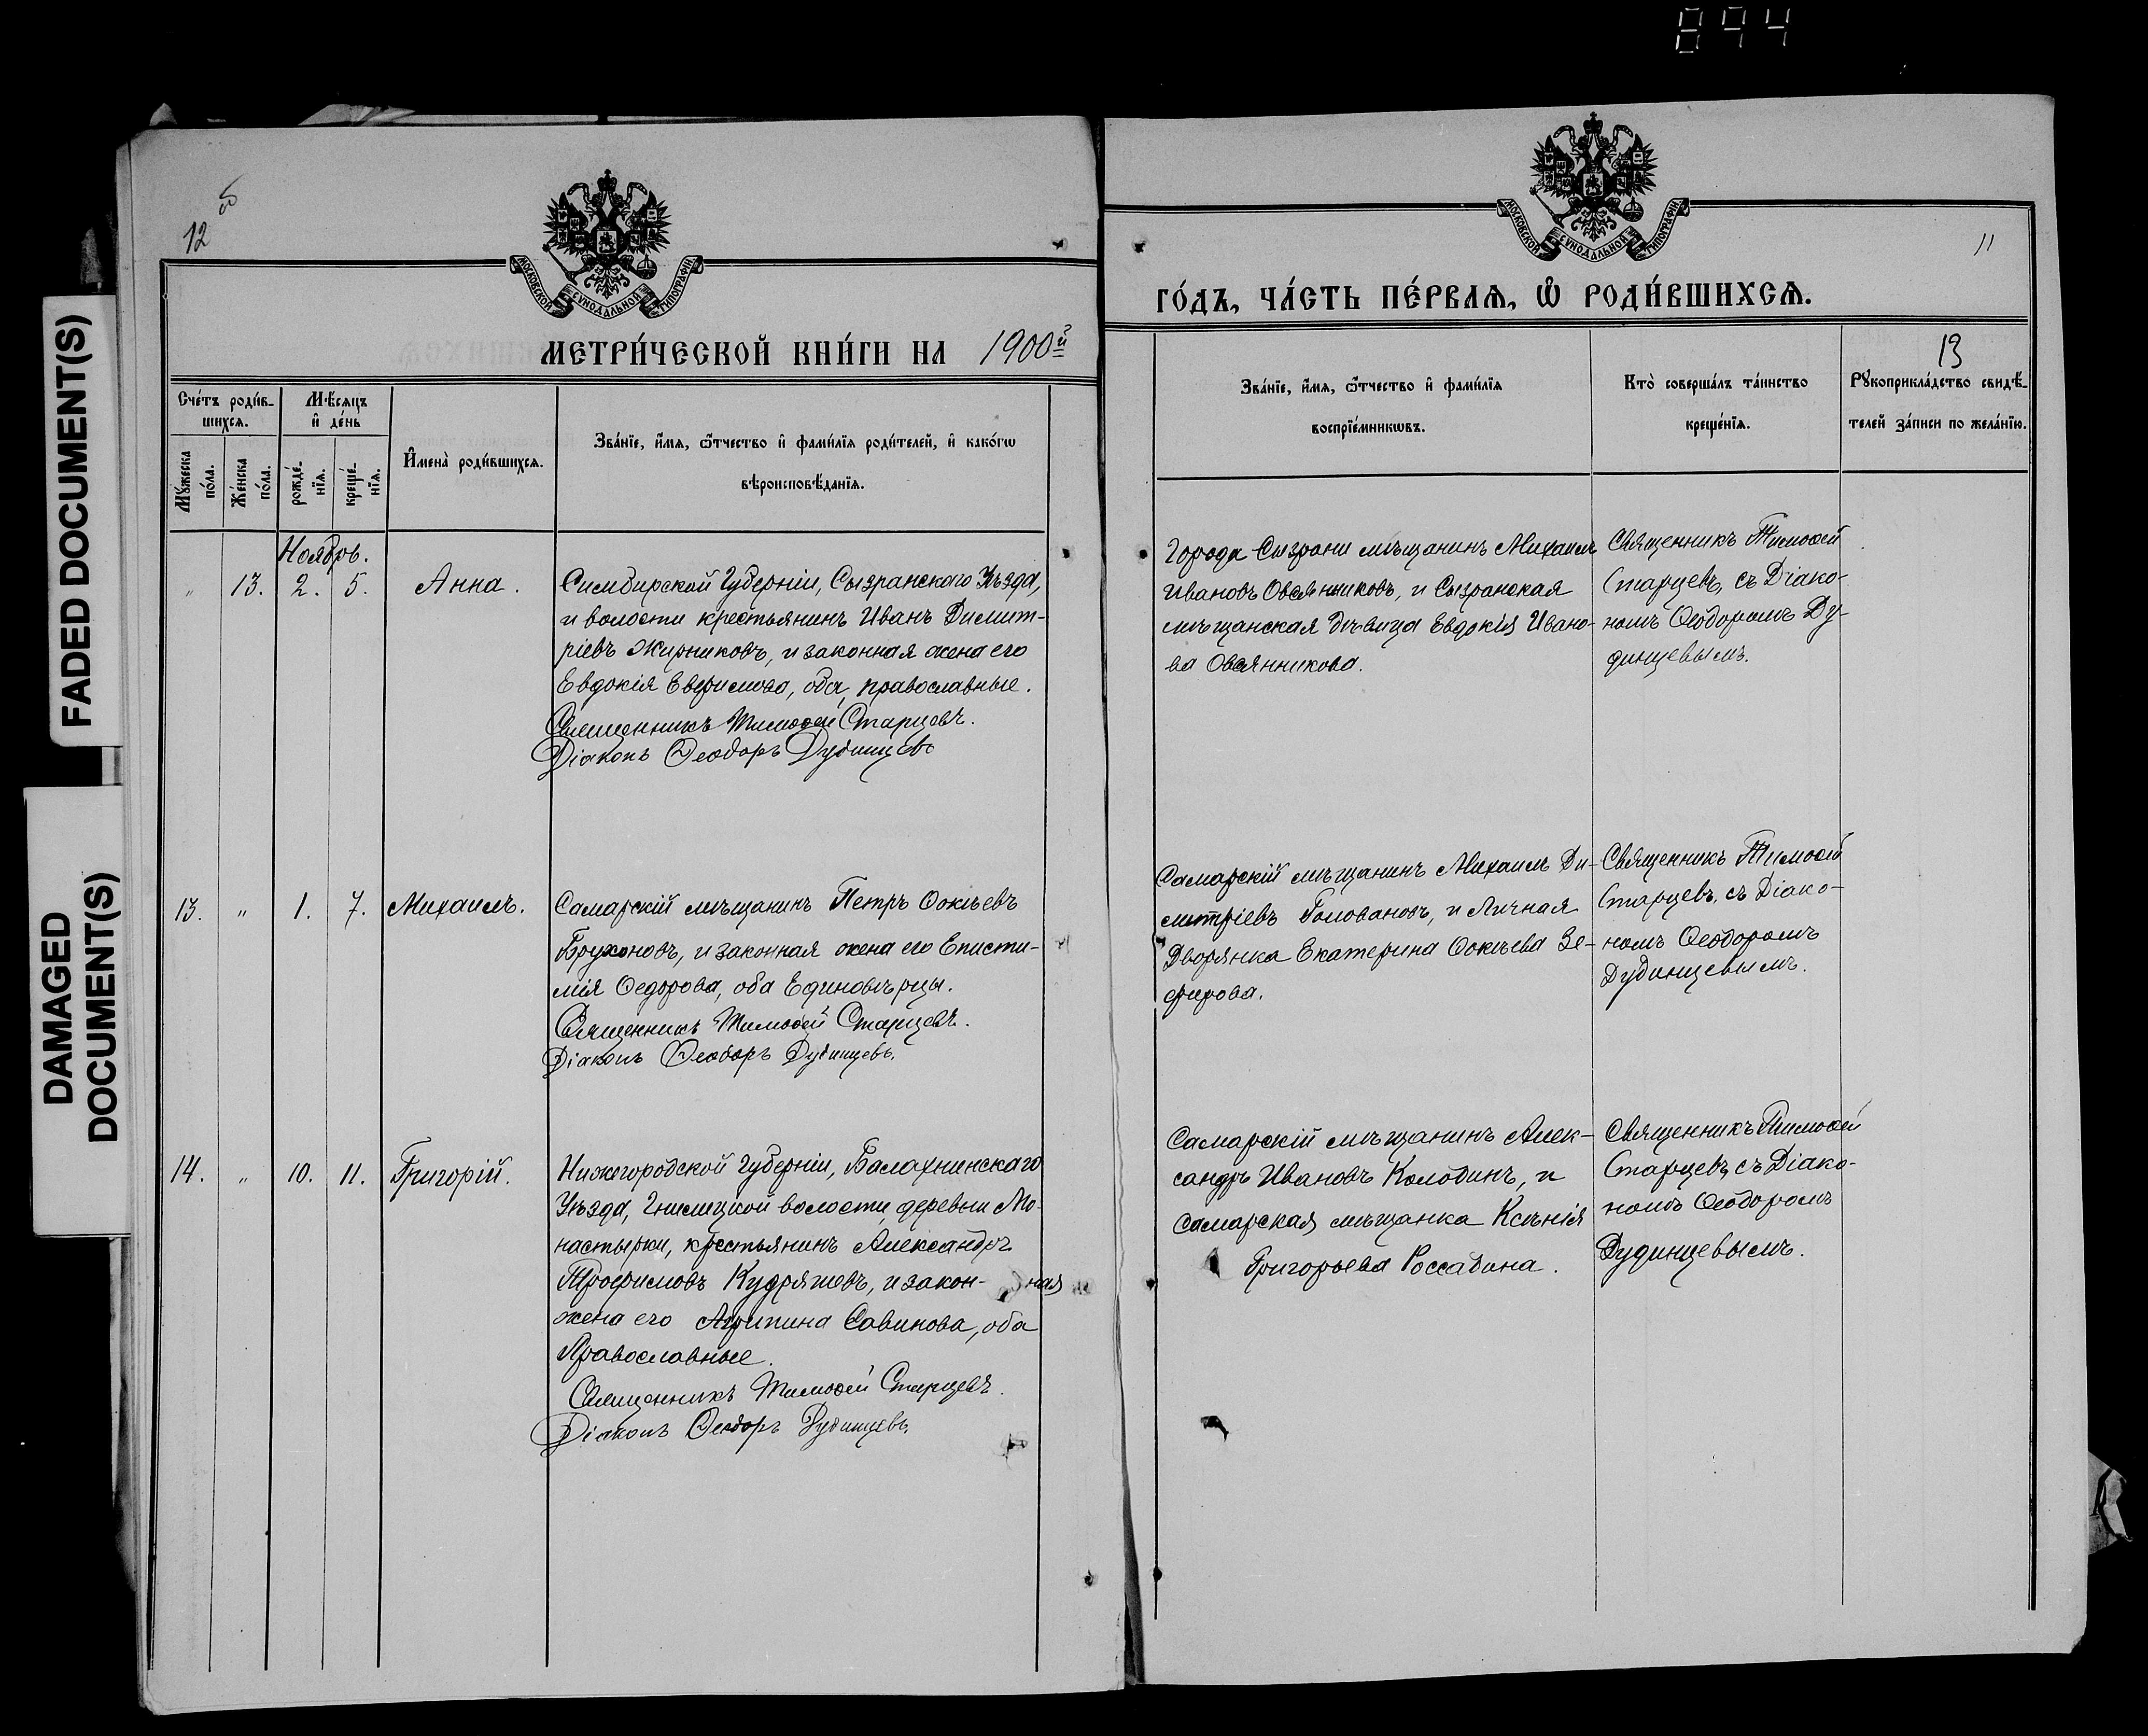 894
FADED DOCUMENT(S)
DAMAGED
DOCUMENT(S)
12
МОСКОВСКОЙ СѴНОДАЛЬНОЙ ТИПОГРАФІИ
МЕТРИ́ЧЕСКОЙ КНИ́ГИ НА 1900й
Сче́тъ роди́в-
шихсѧ.
Мѣ́сѧцъ
и҆ де́нь
Мꙋ́жеска
по́ла.
Же́нска
по́ла.
рожде́-
нїѧ.
креще́-
нїѧ.
И҆мена̀ роди́вшихсѧ.
Зва́нїе, и҆́мѧ, ѻ҆́тчество и҆ фами́лїѧ роди́телей, и҆ како́гѡ
вѣроисповѣ́данїѧ.
Ноябрь.
" 13. 2. 5. Анна.
Симбирской Губерніи, Сызранскаго Уѣзда,
и волости крестьянинъ Иванъ Димит-
ріевъ Жирниковъ, и законная жена его
Евдокія Ефимова, оба, православные.
Священникъ Тимоѳей Старцевъ.
Діаконъ Ѳеодоръ Дудинцевъ
13. " 1. 7. Михаилъ.
Самарскій мѣщанинъ Петръ Ѳокіевъ
Брухоновъ, и законная жена его Еписти-
мія Ѳедорова, оба Единовѣрцы.
Священникъ Тимоѳей Старцевъ.
Діаконъ Ѳеодоръ Дудинцевъ.
14. " 10. 11. Григорій.
Нижегородской Губерніи, Балахнинскаго
Уѣзда, волости, деревни Мо-
настырки, крестьянинъ Александръ
Трофимовъ Кудряшевъ, и закон-ная
жена его Агрипина Савинова, оба
Православные.
Священникъ Тимоѳей Старцевъ.
Діаконъ Ѳеодоръ Дудинцевъ.
МОСКОВСКОЙ СѴНОДАЛЬНОЙ ТИПОГРАФІИ
11
ГО́ДЪ, ЧА́СТЬ ПЕ́РВАѦ, Ѽ РОДИ́ВШИХСѦ.
13
Зва́нїе, и҆́мѧ, ѻ҆́тчество и҆ фами́лїѧ
воспрїе́мникѡвъ.
Кто̀ соверша́лъ та́инство
креще́нїѧ.
Рꙋкоприкла́дство свидѣ́-
телей за́писи по жела́нїю.
Города Сызрани мѣщанинъ Михаилъ
Ивановъ Овсянниковъ, и Сызранская
мѣщанская дѣвица Евдокія Ивано-
ва Овсянникова.
Священникъ Тимоѳей
Старцевъ, съ Діако-
номъ Ѳеодоромъ Ду-
динцевымъ.
Самарскій мѣщанинъ Михаилъ Ди-
митріевъ Головановъ, и Личная
Дворянка Екатерина Ѳокіева Зе-
фирова.
Священникъ Тимоѳей
Старцевъ, съ Діако-
номъ Ѳеодоромъ
Дудинцевымъ.
Самарскій мѣщанинъ Алек-
сандръ Ивановъ Колодинъ, и
Самарская мѣщанка Ксенія
Григорьева Россадина.
Священникъ Тимоѳей
Старцевъ, съ Діако-
номъ Ѳеодоромъ
Дудинцевымъ.